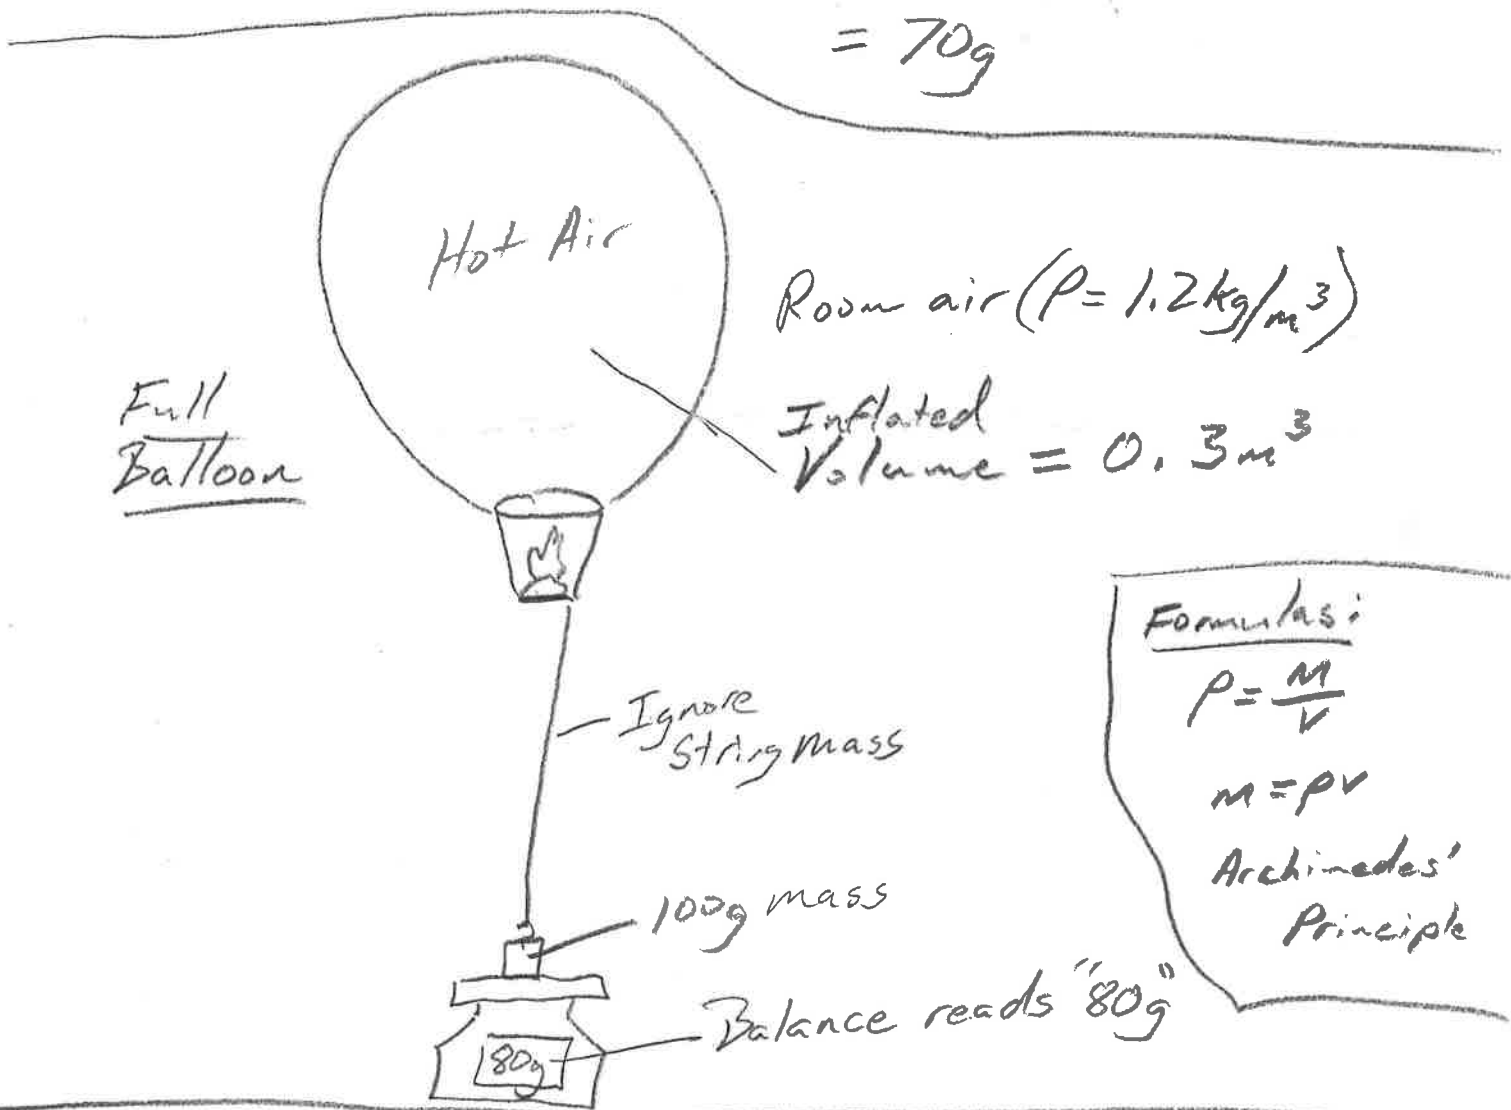 = 70g
Hot Air
Room air (ρ = 1.2 kg/m³)
Full
Balloon
Inflated
Volume = 0.3m³
Formulas:
ρ = m/v
m = ρv
Archimedes'
Principle
Ignore
string mass
100g mass
Balance reads "80g"
80g